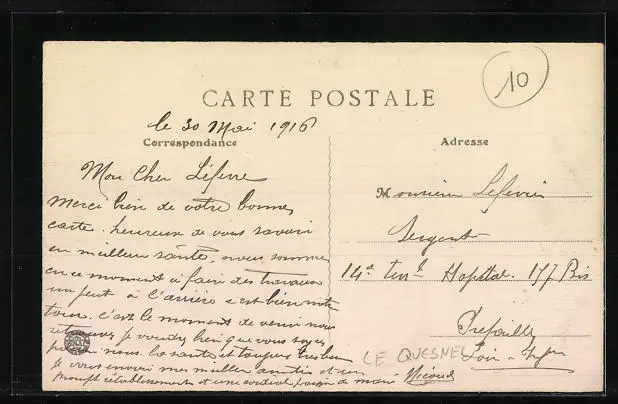 10
CARTE POSTALE
le 30 Mai 1916
Correspondance
Mon Cher Léfevre
Merci bien de votre bonne
carte. heureuse de vous savoir
en meilleur santé, nous sommes
en ce moment a faire des travaux
un peut a l'arrière c'est bien notre
tour. c'est le moment de venir nous
retrouver je voudrez bien que vous soyez
nous. la santé et toujour très bon
je vous envoie mes meilleur amitiés et un
prompt rétablissement et une cordial poigné de main
Nicoud
Adresse
Monsieur Lefevre
Sergent
14e Hopital 177 Bis
Prefailles
Loire - Infre
LE QUESNEL